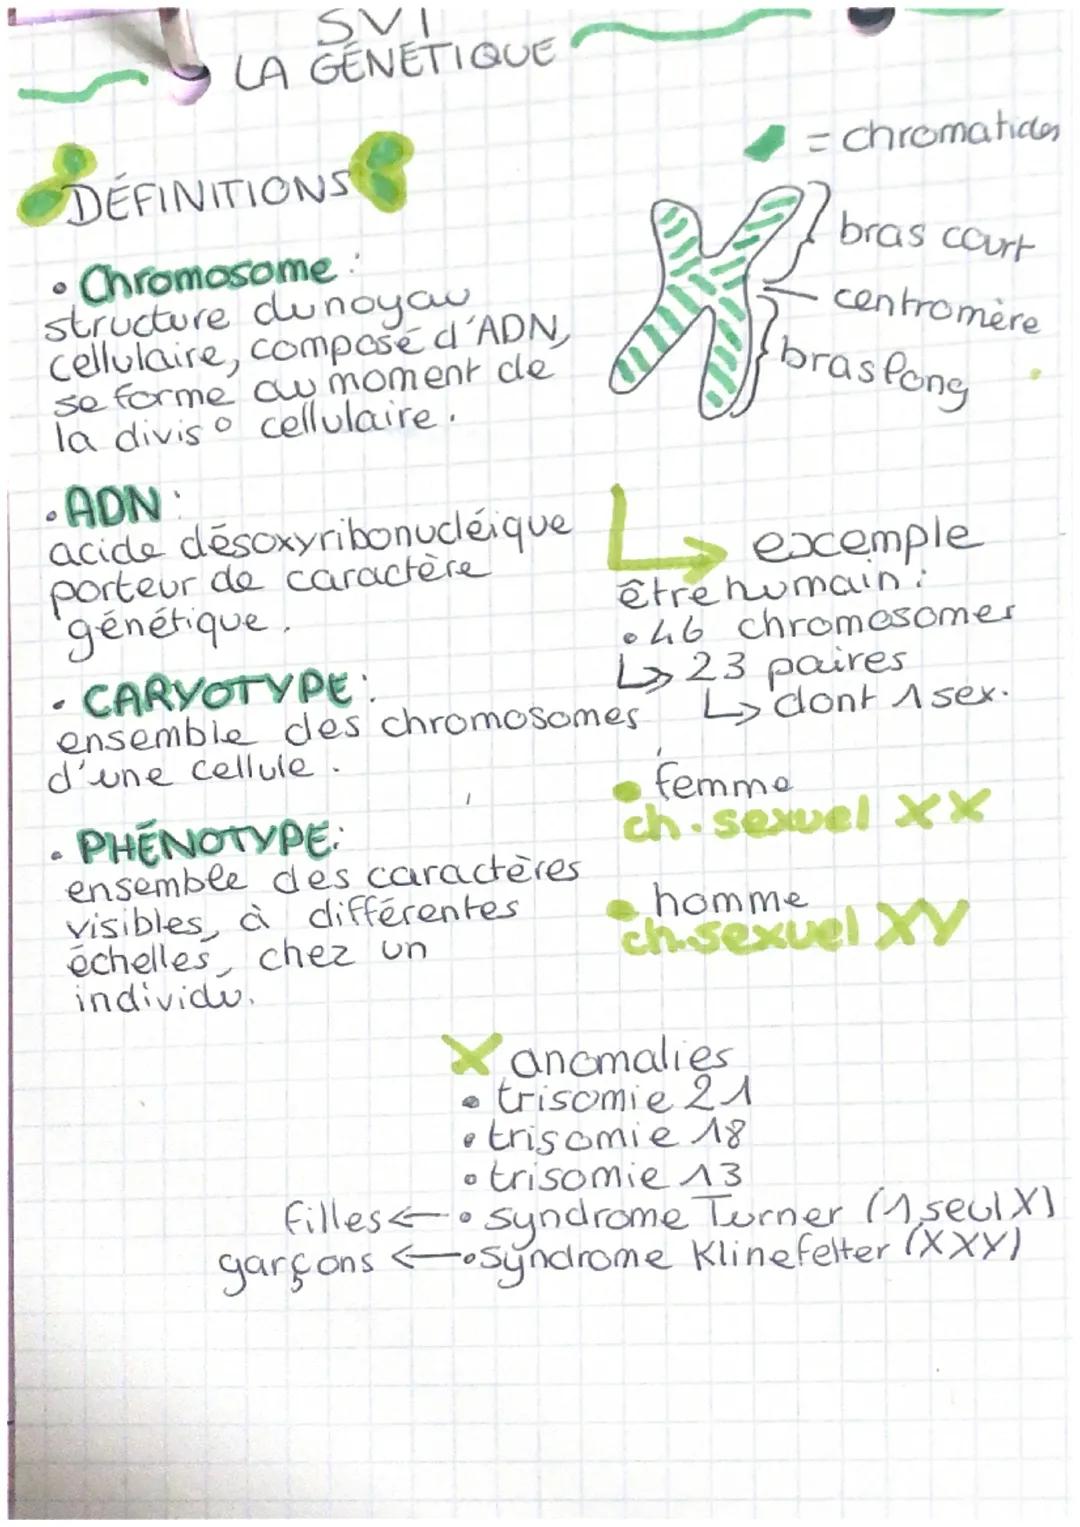 SVT
LA GÉNÉTIQUE
DÉFINITIONS
• Chromosome :
structure du noyau
cellulaire, composé d'ADN,
se forme au moment de
la divis° cellulaire.
• ADN :
acide désoxyribonucléique
porteur de caractère
génétique.
• CARYOTYPE :
ensemble des chromosomes
d'une cellule.
• PHÉNOTYPE :
ensemble des caractères
visibles, à différentes
échelles, chez un
individu.
= chromatides
bras court
centromère
bras long
exemple
être humain :
• 46 chromosomes
↳ 23 paires
↳ dont 1 sex.
• femme
ch. sexuel XX
• homme
ch. sexuel XY
X anomalies
• trisomie 21
• trisomie 18
• trisomie 13
filles ← • syndrome Turner (1 seul X)
garçons ← • syndrome Klinefelter (XXY)